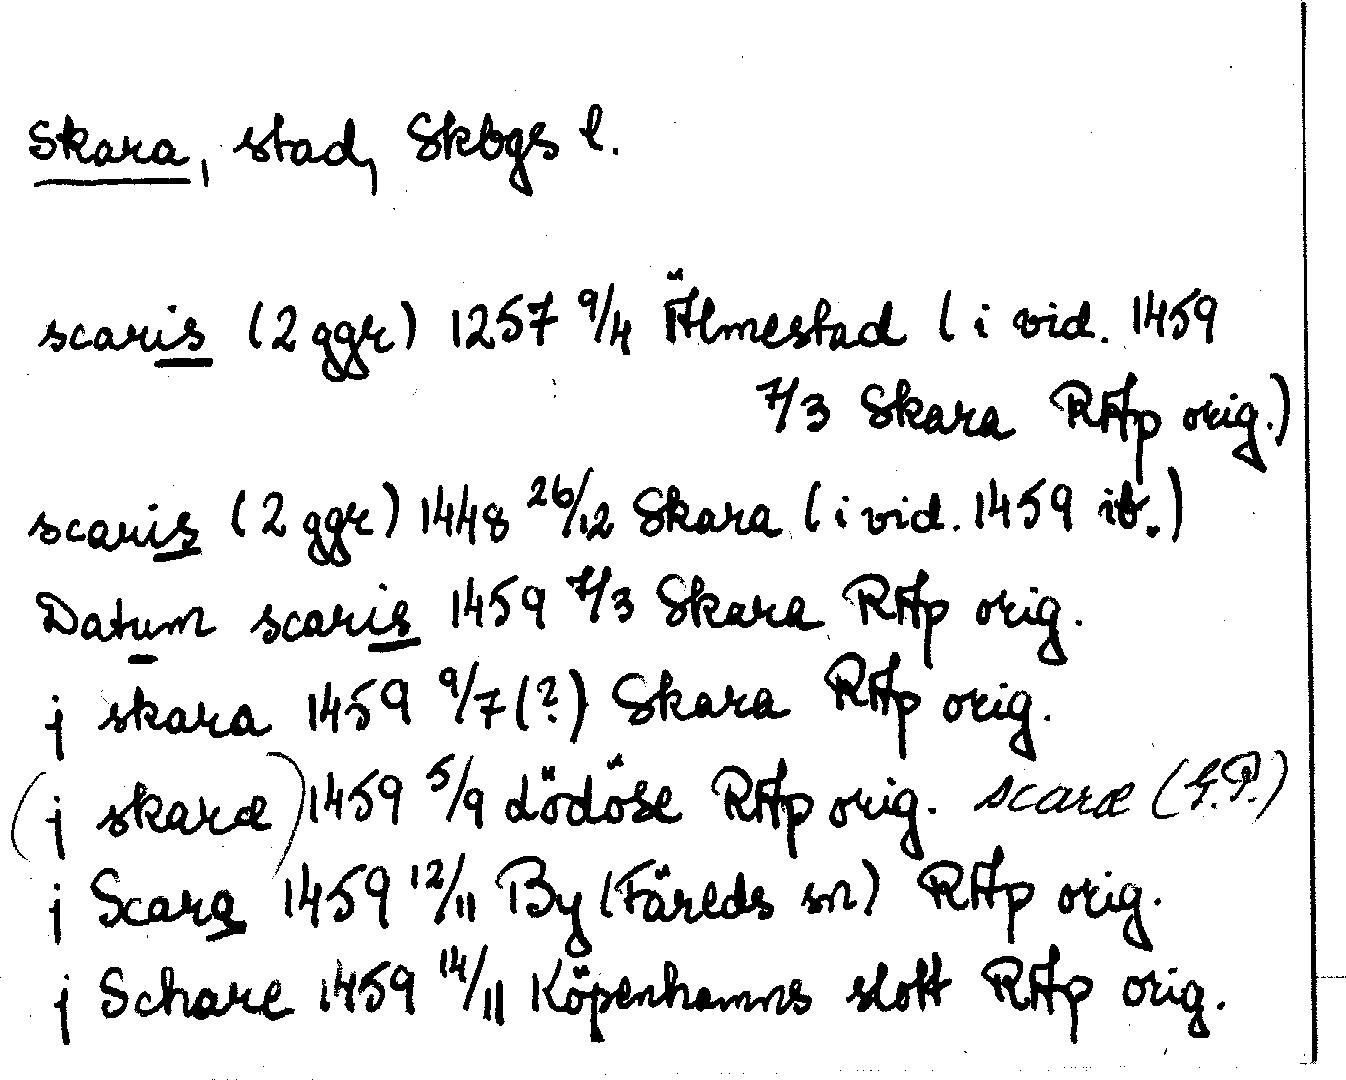 Skara, stad, Skbgs l.
scaris (2 ggr) 1257 9/4 Älmestad (i vid. 1459
7/3 Skara RAp orig.)
scaris (2 ggr) 1448 26/12 Skara (i vid. 1459 ib.)
Datum scaris 1459 7/3 Skara RAp orig.
j skara 1459 9/7 (?) Skara RAp orig.
(j skaræ) 1459 5/9 Lödöse RAp orig. scaræ (G.P.)
j Scara 1459 12/11 By (Färeds sn) RAp orig.
j Schare 1459 14/11 Köpenhamns slott RAp orig.